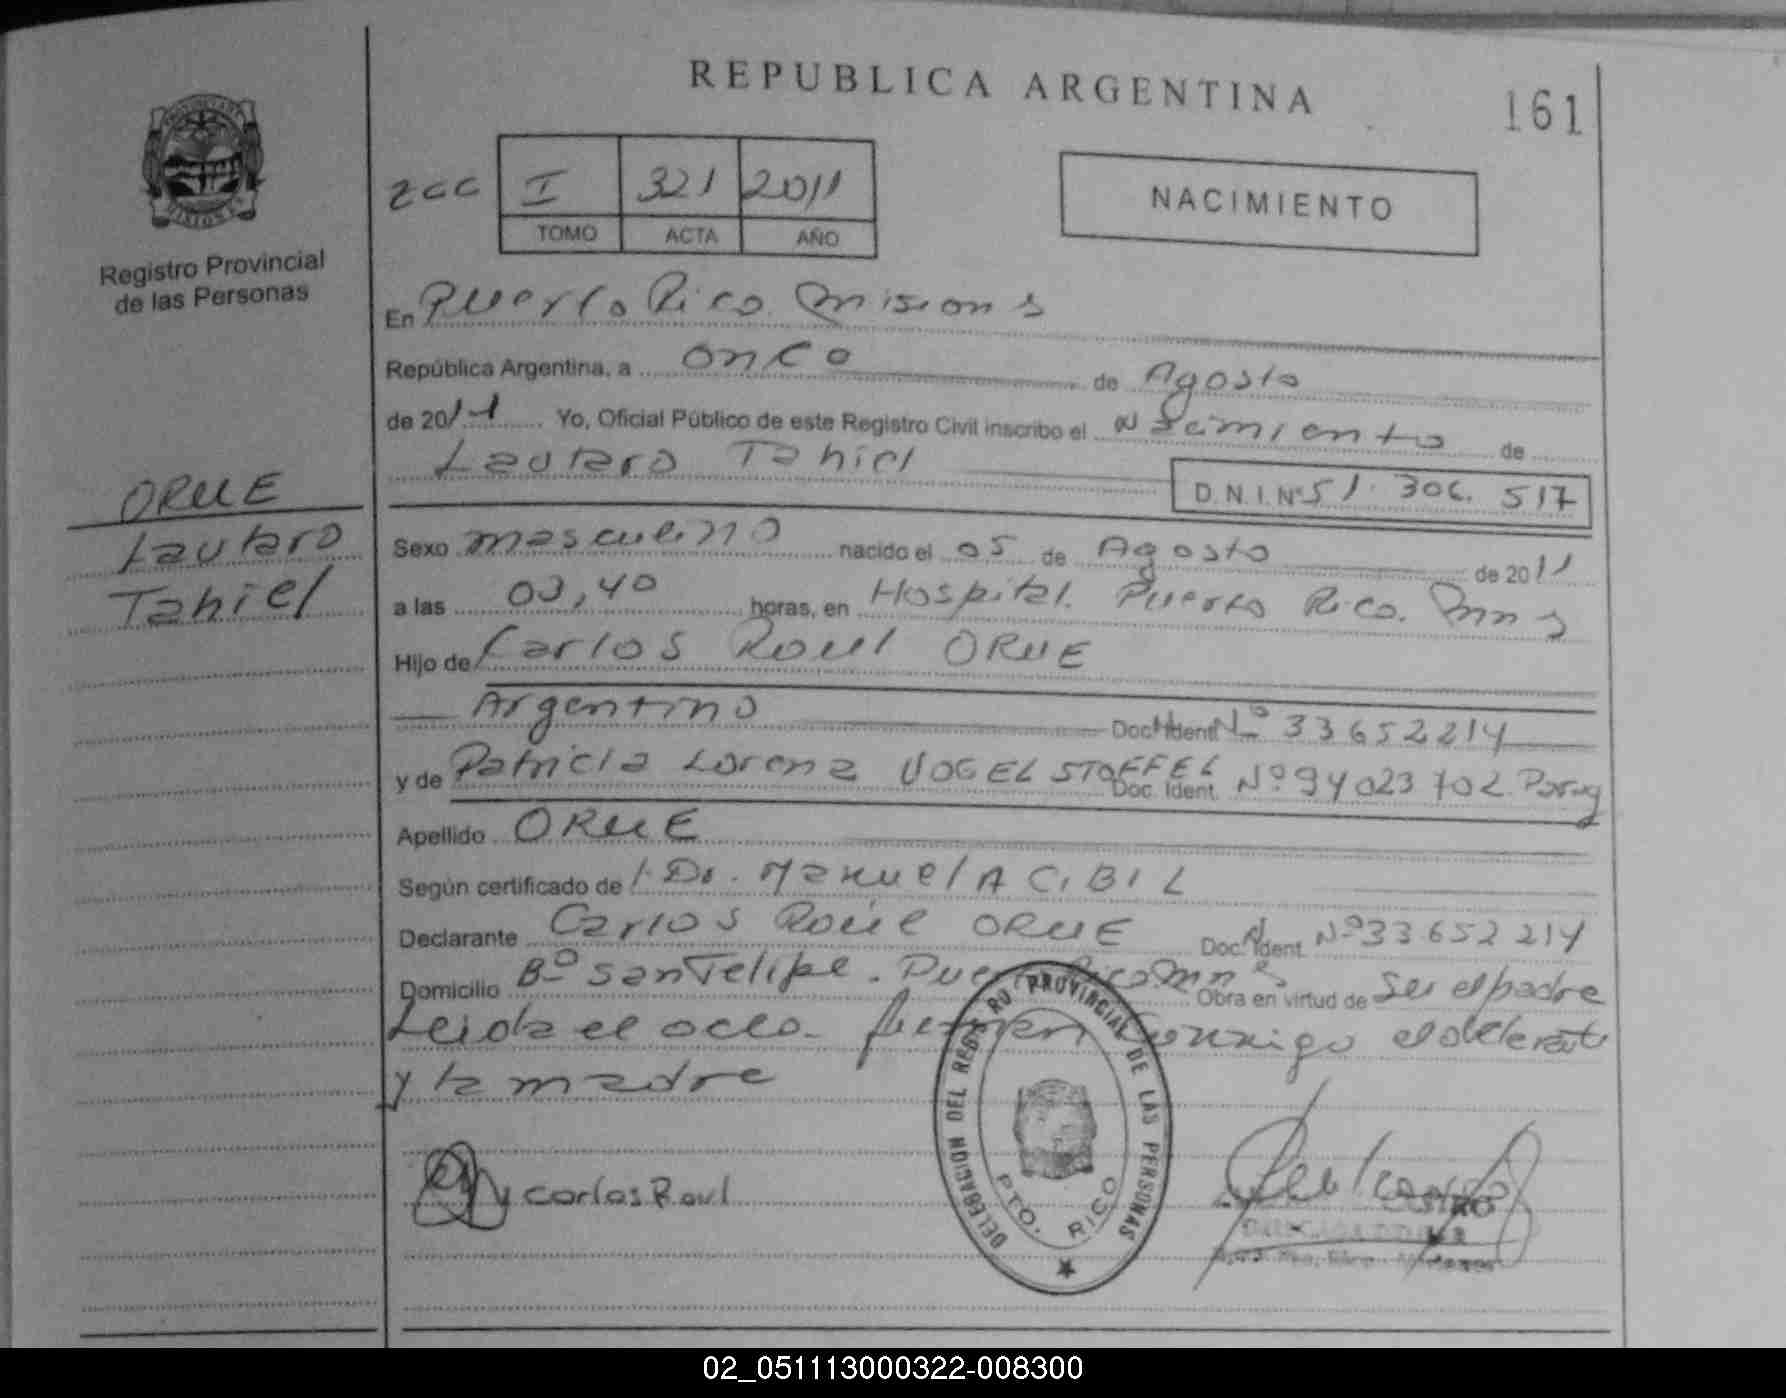 REPUBLICA ARGENTINA
161
Registro Provincial
de las Personas
2CC I 321 2011
TOMO ACTA AÑO
NACIMIENTO
En Puerto Rico Misions
República Argentina, a once de Agosto
de 2011 Yo, Oficial Público de este Registro Civil inscribo el nacimiento de
Lautaro Tahiel D.N.I.Nº 51.306.517
ORUE
Lautaro
Tahiel
Sexo masculino nacido el 05 de Agosto de 2011
a las 03,40 horas, en Hospital. Puerto Rico. Mnes
Hijo de Carlos Raul ORUE
Argentino Doc. Ident. Nº 33652214
y de Patricia Lorena VOGEL STOFFEL Doc. Ident. Nº 94023702 Parag
Apellido ORUE
Según certificado de Dr. Manuel A CIBIL
Declarante Carlos Raúl ORUE Doc. Ident. Nº 33652214
Domicilio Bº San Felipe. Puerto Rico Mnes Obra en virtud de Ser el padre
Leida el acta firman conmigo el
y la madre
Carlos Raul
DELEGACION DEL REGISTRO PROVINCIAL DE LAS PERSONAS
PTO. RICO
02_051113000322-008300